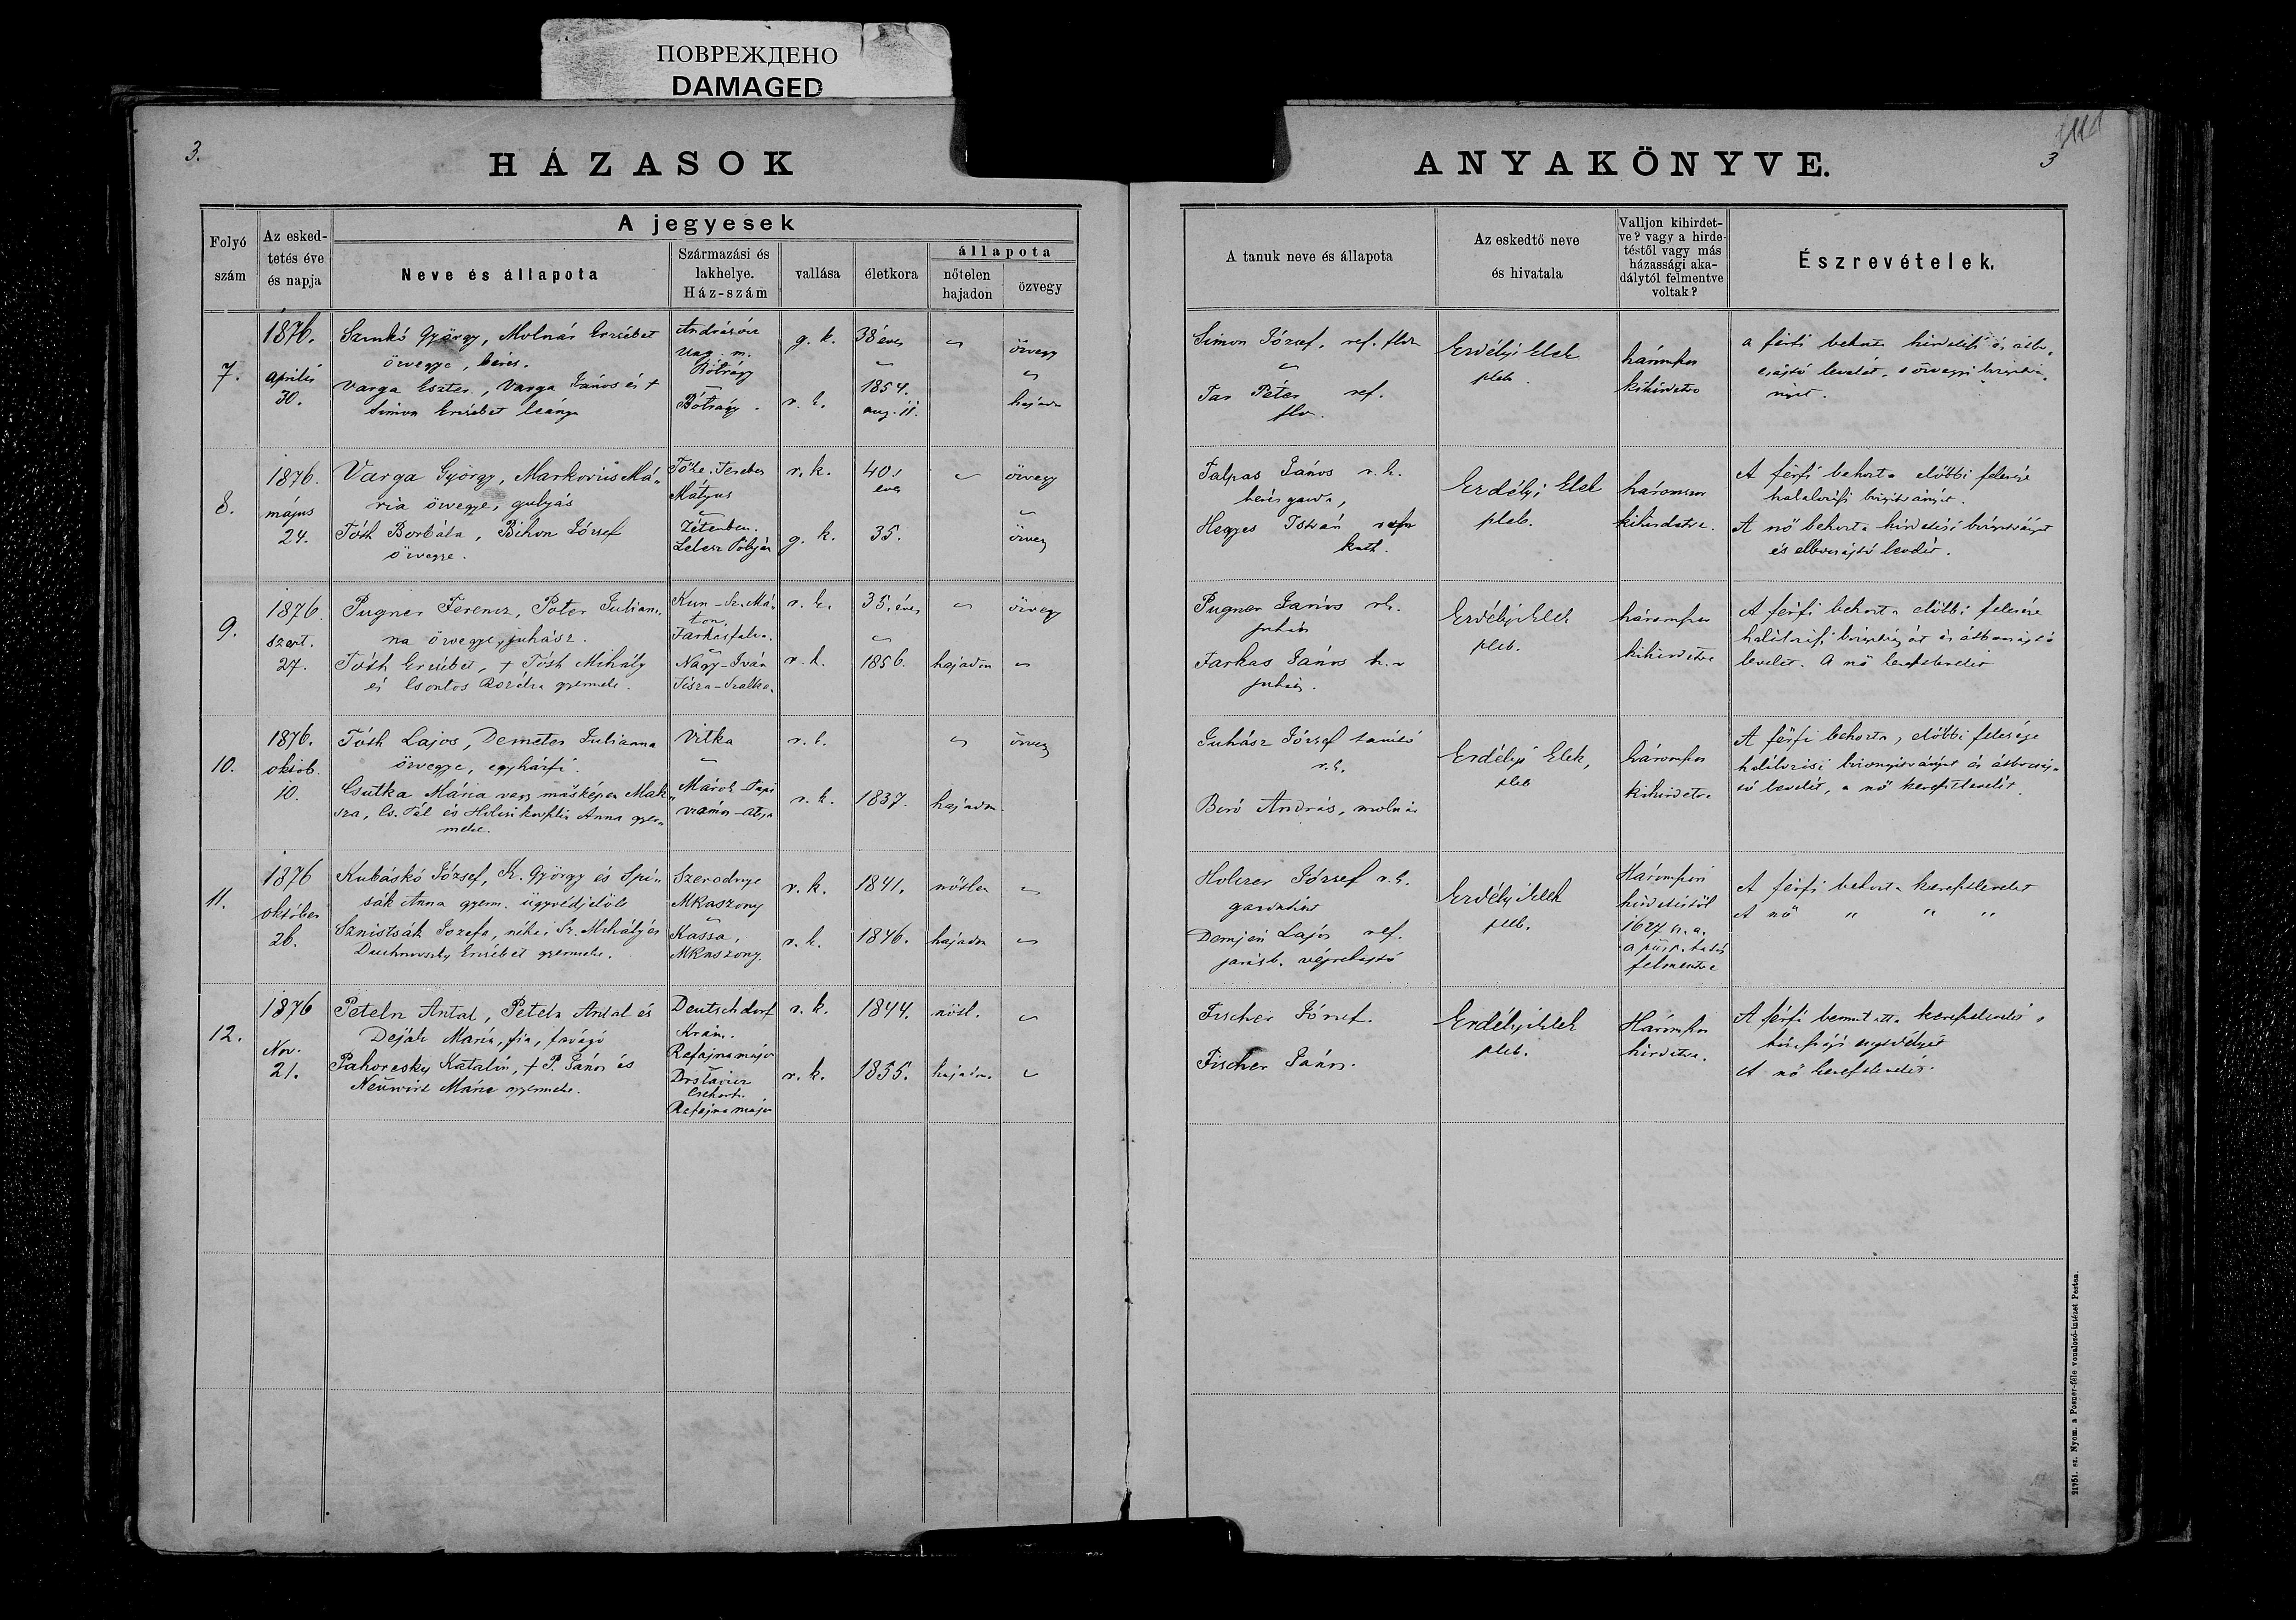 ПОВРЕЖДЕНО
DAMAGED
3.
HÁZASOK
ANYAKÖNYVE.
3
Folyó szám
Az esked-
tetés éve
és napja
A jegyesek
Neve és állapota
Származási és
lakhelye.
Ház-szám
vallása
életkora
állapota
nőtelen
hajadon
özvegy
A tanuk neve és állapota
Az eskedtő neve
és hivatala
Valljon kihirdet-
ve? vagy a hirde-
téstől vagy más
házassági aka-
dálytól felmentve
voltak?
Észrevételek.
7.
1876.
április
30.
György, Molnár Erzsébet
özvegye, béres.
Varga Eszter, Varga János és †
Simon Erzsébet leánya
Ung. m.
Bótrágy
Bótrágy.
g. k.
r. k.
38 éves
1854.
aug. 11.
özvegy
hajadon
Simon József, ref.
Péter ref.
Erdélyi Elek
pleb.
háromszor
kihirdetve
a férfi
levelét, s özvegyi
8.
1876.
május
24.
Varga György, Markovics Má-
ria özvegye, gulyás
Tóth Borbála, Bihon József
özvegye.
Mátyus
Lelesz Polyán
r. k.
g. k.
40.
éves
35.
özvegy
özvegy
Talpas János r. k.
béresgazda,
Hegyes István
kath.
Erdélyi Elek
pleb.
háromszor
kihirdetve.
A férfi behozta előbbi felesége
halálozási bizonyítványát.
A nő behozta hirdetési bizonyítványát
és elbocsájtó levelét.
9.
1876.
szept.
27.
Pugner Ferencz, Páter Julian-
na özvegye, juhász.
Tóth Erzsébet, † Tóth Mihály
és Csontos Rozália gyermeke.
Kun-Sz. Már-
ton,
Farkasfalva.
Nagy-Iván
Tisza-Szalka.
r. k.
r. k.
35. éves
1856.
hajadon
özvegy
Pugner János rk.
juhász
Farkas János
juhász.
Erdélyi Elek
pleb.
háromszor
kihirdetve
A férfi behozta előbbi felesége
halálozási bizonyítványát és átbocsájtó
levelét. A nő keresztlevelét
10.
1876.
októb.
10.
Tóth Lajos, Demeter Julianna
özvegye, egyházfi.
Csutka Mária vagy másképen Mak-
sza, Cs. Pál és Anna gyer-
meke.
Vitka
Márok Papi
vámos-atya
r. k.
r. k.
1837.
hajadon
özvegy
Juhász József tanító
r. k.
Biró András, molnár
Erdélyi Elek,
pleb
háromszor
kihirdetve
A férfi behozta, előbbi felesége
halálozási bizonyítványát és átbocsáj-
tó levelét, a nő keresztlevelét.
11.
1876
október
26.
Kubáskó József, K. György és Spi-
sák Anna gyerm. ügyvédjelölt
Sznistsák Jozefa, néhai Sz. Mihály és
Duchnovszky Erzsébet gyermeke.
Szerednye
MKaszony
Kassa,
MKaszony.
r. k.
r. k.
1841.
1846.
nőtlen
hajadon
Holczer József r. k.
Demjén Lajos ref.
járásb. végrehajtó
Erdélyi Elek
pleb.
Háromszori
hirdetéstől
1627 sz. a.
a püsp. hatós.
felmentve
A férfi behozta keresztlevelét
A nő " " "
12.
1876
Nov.
21.
Peteln Antal, Peteln Antal és
Deják Mária, fia, favágó
Pahoresky Katalin, † P. János és
Neuwirt Mária gyermeke.
Deutschdorf
Krain.
Rafajnamajor
Csehort.
Rafajnamajor
r. k.
r. k.
1844.
1855.
nőtl.
hajadon
Fischer József.
Fischer János.
Erdélyi Elek
pleb.
Háromszor
hirdetve.
A férfi bemutatta keresztlevelét,
engedélyét
A nő keresztlevelét.
21751. sz. Nyom. a Posner-féle vonalozó-intézet Pesten.